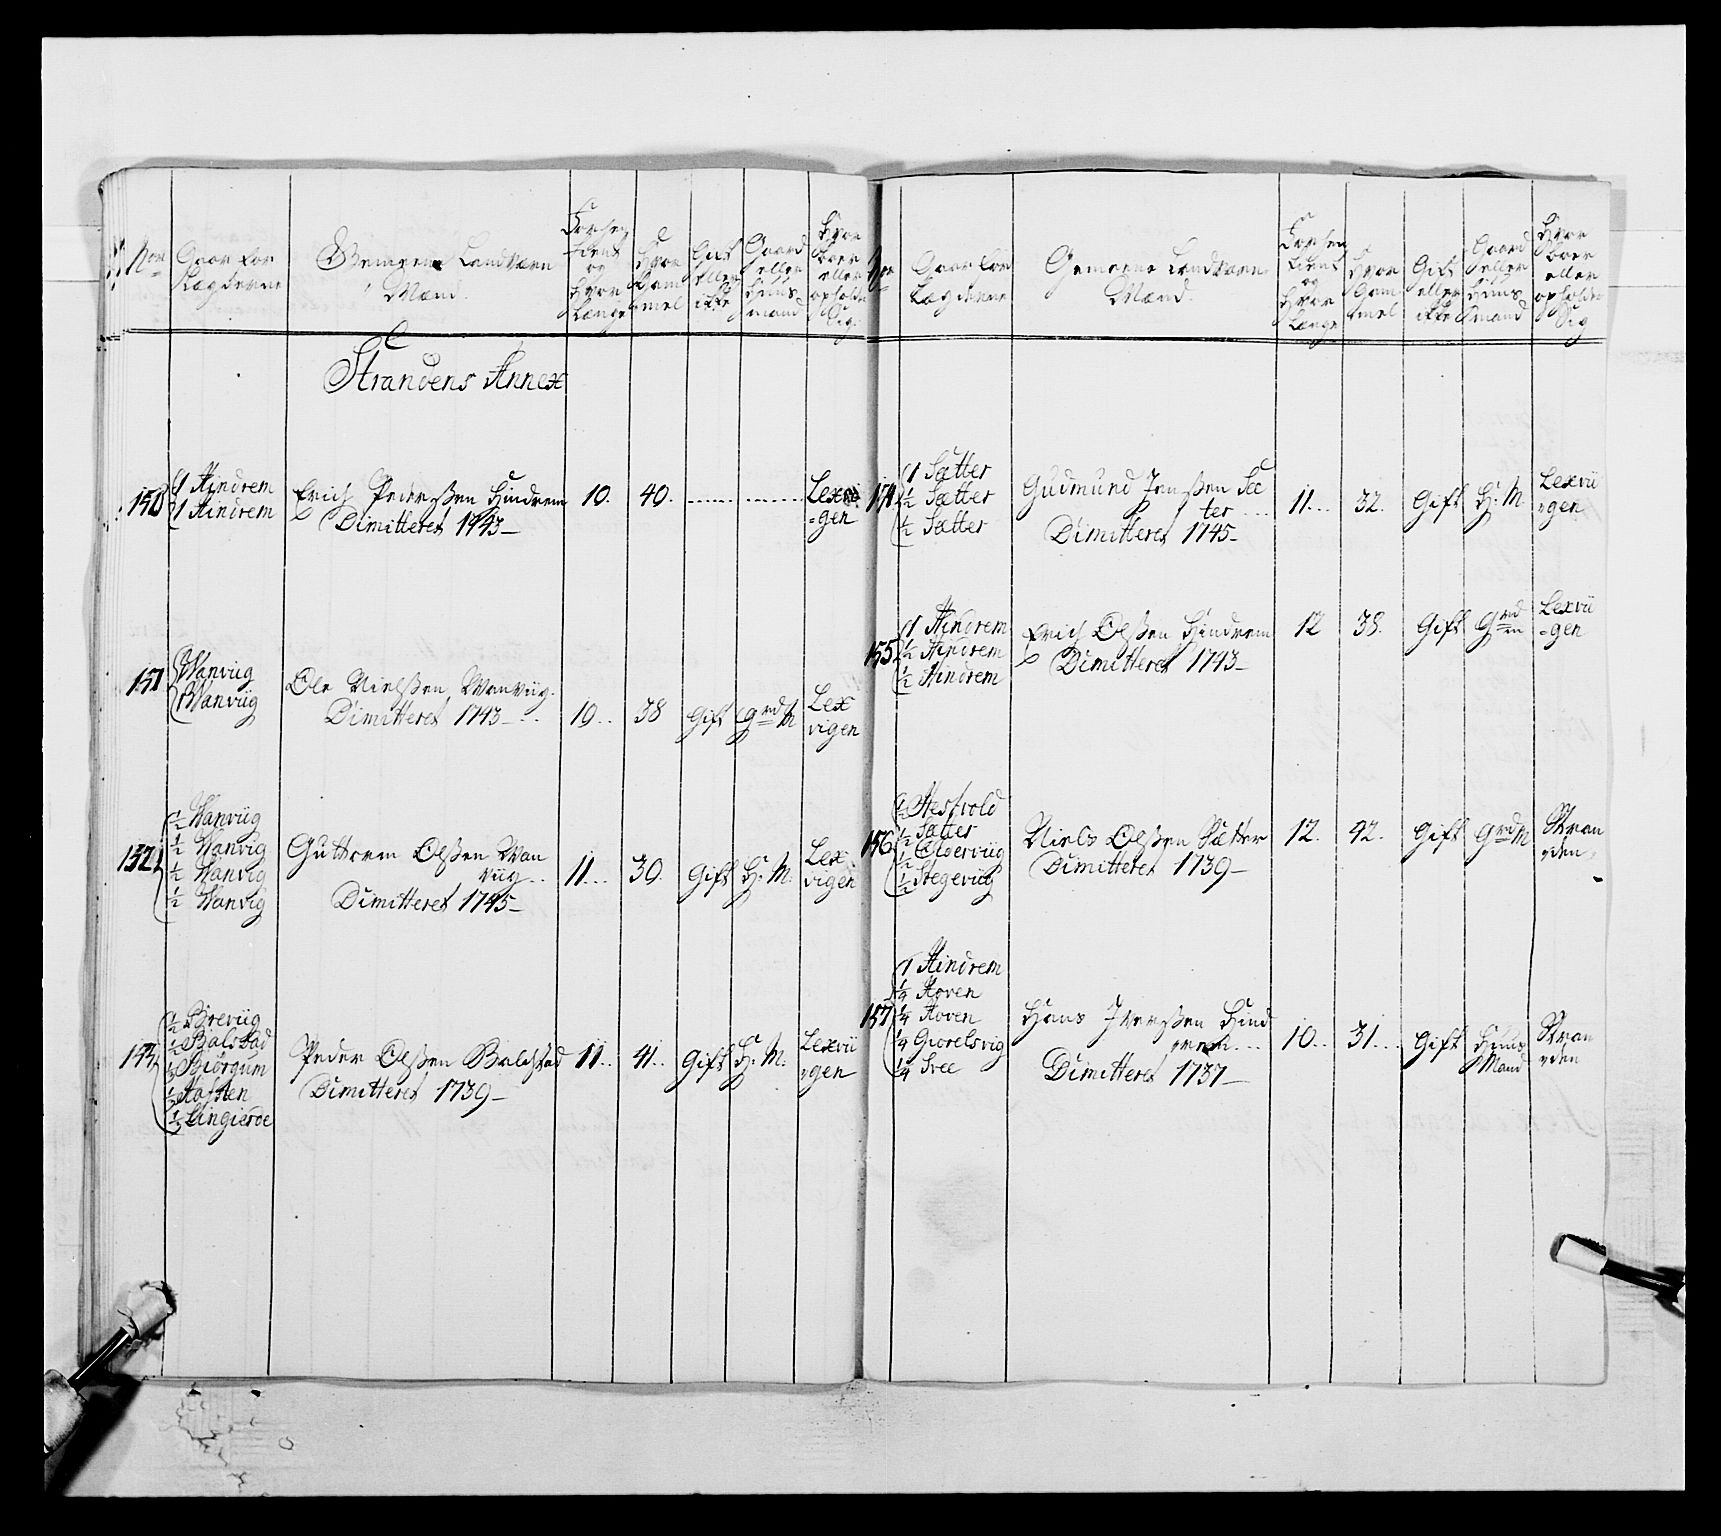 Nor
Gaar for
Lægderne
Gemeene Landværn
Mænd.
Forhen
tient
og
hvor
Længe
Hvor
Gam
mel
Gift
eller
ikke
Gaard
eller
Huus-
mand
Hvor
Boer
eller
opholder
Sig.
Strandens Annex
150
1 Hindrem
1 Hindrem
Erich Pederssen Hindrem
Dimitteret 1743
10.
40.
Lexvii
-gen
151
Wanviig
Wanviig
Ole Nielssen Wanviig.
Dimitteret 1743
10..
38
Gift
Grd M
Lex
vigen
152
½ Wanviig
½ Wanvig
½ Wanvig
½ Wanvig
Guttorm Olssen Wan
viig..
Dimitteret 1745
11...
30.
Gift
H: M:
Lex
vigen
153
½ Breviig
½ Balstad
½ Biörgum
½ Haften
½ Lingieroe
Peder Olssen Balstad
Dimitteret 1739
11..
41..
Gift
H: M:
Lexvii
-gen
Nor
Gaar for
Lægderne
Gemeene Landværn
Mænd.
Forhen
tient
og
hvor
Længe
Hvor
Gam
mel
Gift
eller
ikke
Gaard
eller
Huus-
mand
Hvor
Boer
eller
opholder
Sig
154
1 Sætter
½ Sætter
½ Sætter
Gudmund Jenssen Sæ
ter
Dimitteret 1745
11...
32.
Gift
H: M.
Lexvii
-gen
155
1 Hindrem
½ Hindrem
½ Hindrem
Erich Olssen Hindrem
Dimitteret 1743
12
38.
Gift
Grd
Lexvii
-gen
156
½ Hestvold
½ Sætter
½ Olderviig
½ Stegeviig
Niels Olssen Sætter
Dimitteret 1739
12.
42.
Gift
Grd M
Stran
-den
157
1 Hindrem
¼ Hoven
¼ Hoven
¼ Giorelsvig
¼ Svee
Hans Iverssen Hind
rem...
Dimitteret 1737
10..
31...
Gift
Huus
Mand
Stran
-den